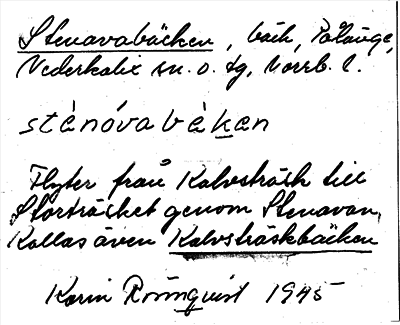 Stenavabäcken, bäck, Pålänge,
Nederkalix sn. o. tg, Norrb. l.
sténóvabèken
Flyter från Kalvsträsk till
Storträsket genom Stenavan.
Kallas även Kalvsträskbäcken
Karin Rönnquist 1945